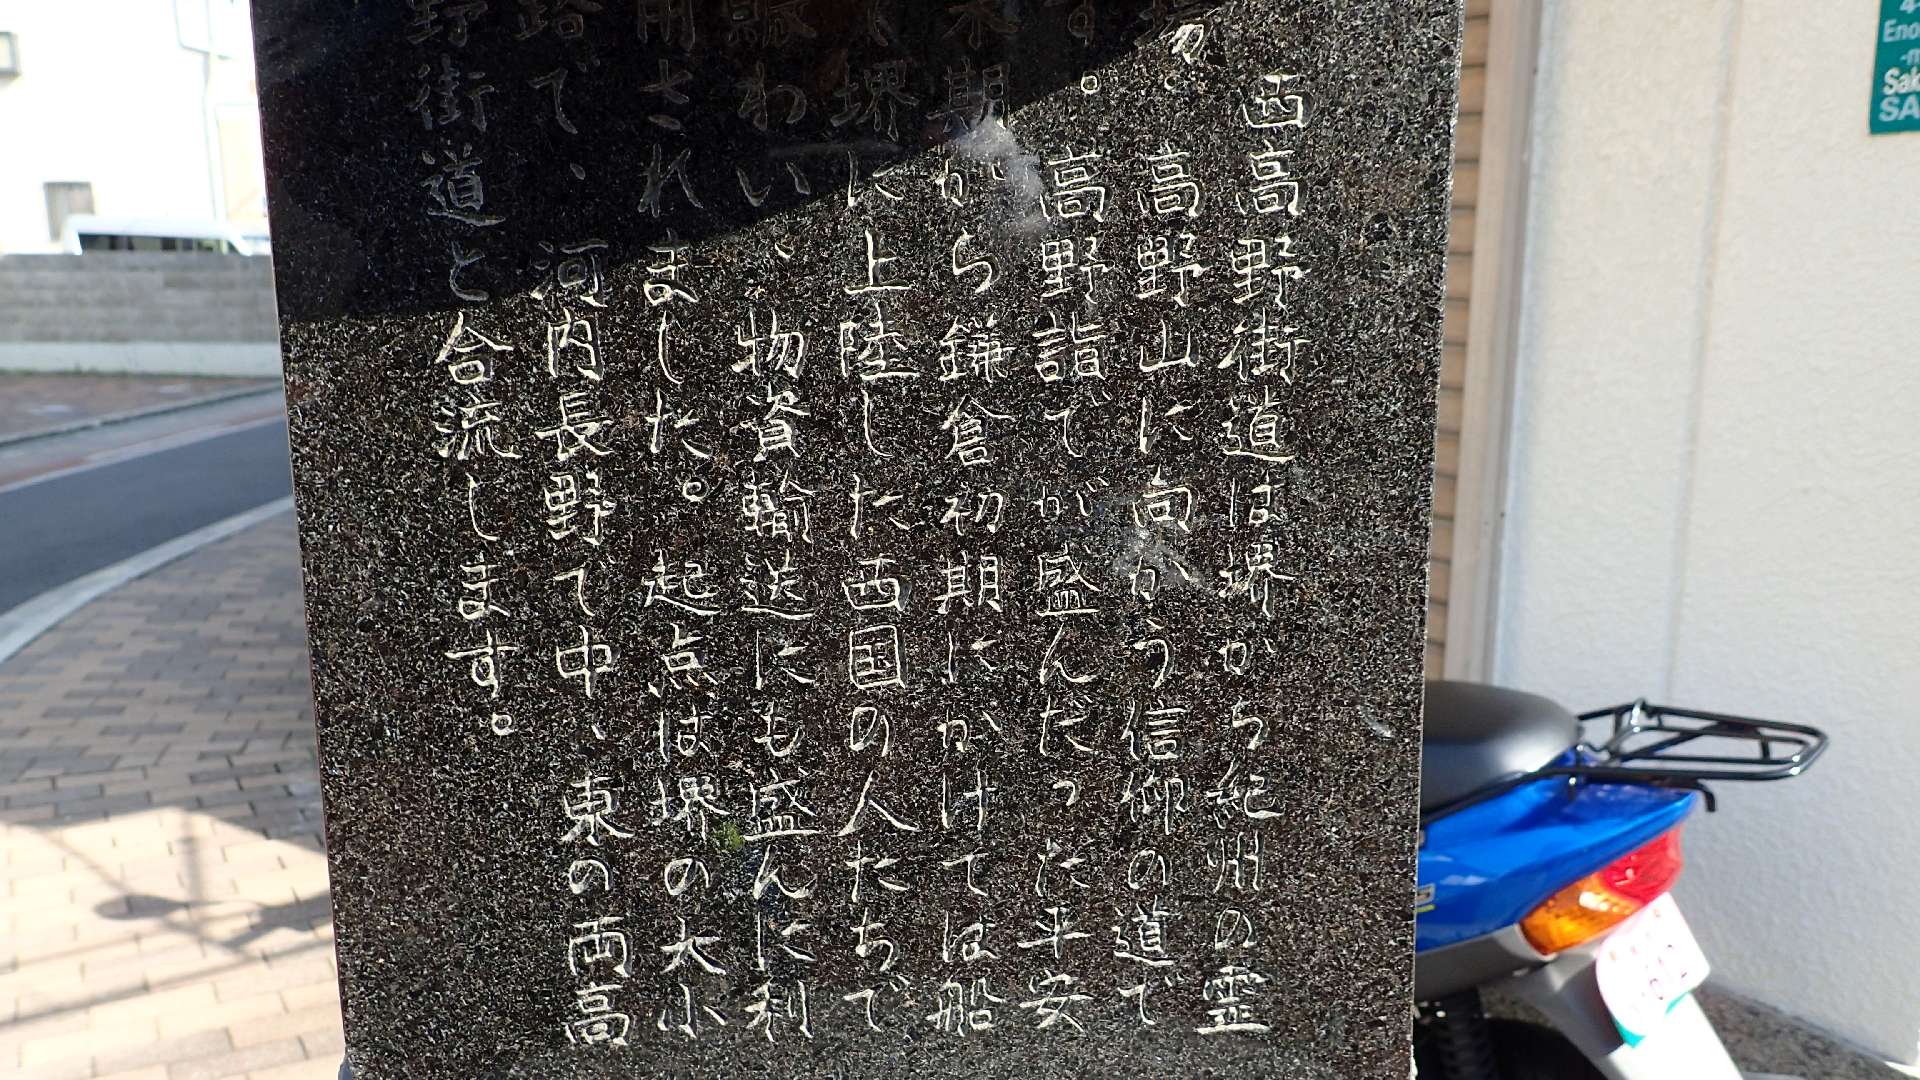 西高野街道は堺から紀州の霊
場、高野山に向かう信仰の道で
す。高野詣でが盛んだった平安
末期から鎌倉初期にかけては船
で堺に上陸した西国の人たちで
賑わい、物資輸送にも盛んに利
用されました。起点は堺の大小
路で、河内長野で中、東の両高
野街道と合流します。
4-
Eno
Sak
SA